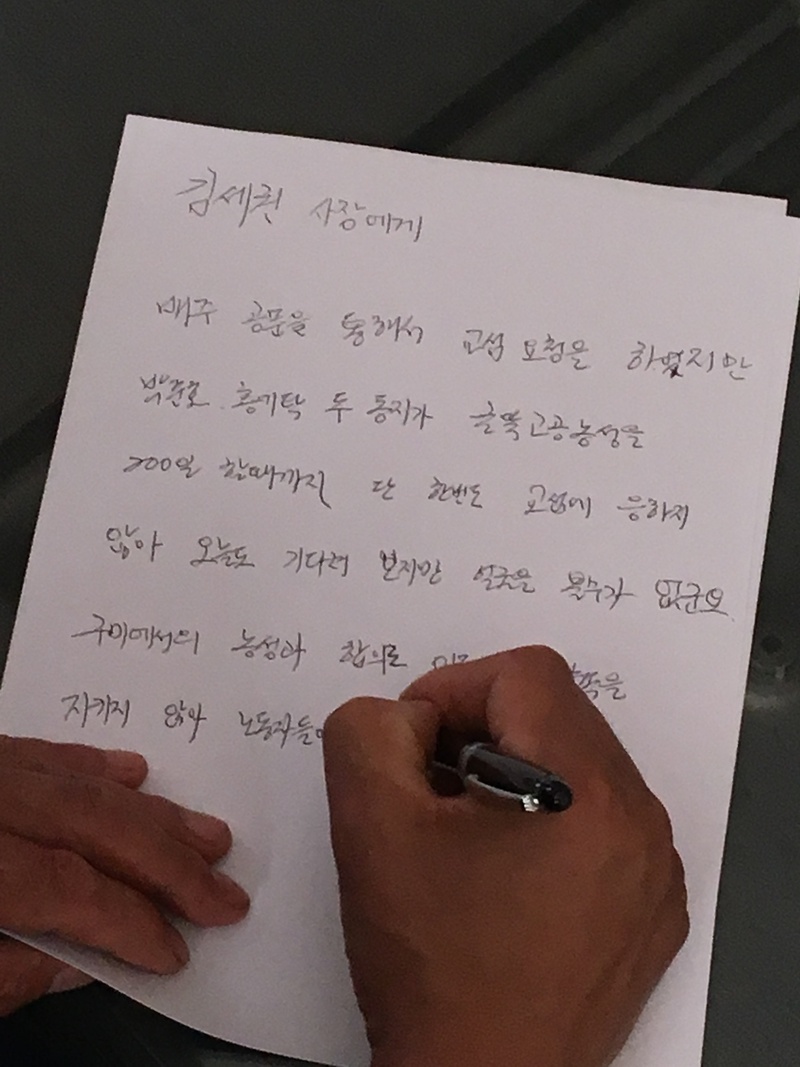 김세권 사장에게
매주 공문을 통해서 교섭 요청을 하였지만
박준호. 홍기탁 두 동지가 굴뚝고공농성을
200일 할때까지 단 한번도 교섭에 응하지
않아 오늘도 기다려 보지만 얼굴을 볼수가 없군요
구미에서의 농성과 합의로
자키지 않아 노동자들